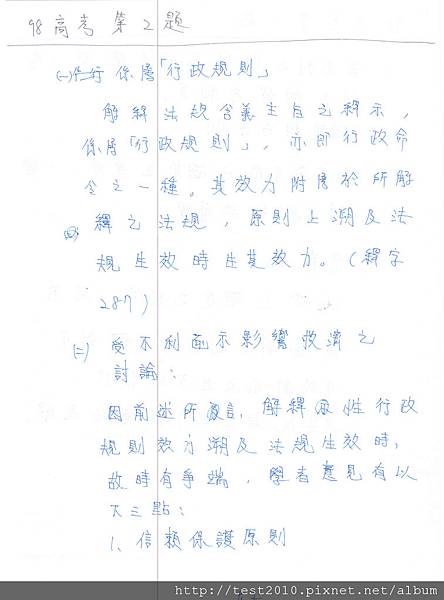 98高考 第2題
(一) 係屬「行政規則」
解釋法規含義主旨之釋示，
係屬「行政規則」，亦即行政命
令之一種。其效力附屬於所解
釋之法規，原則上溯及法
規生效時生其效力。(釋字
287)
(二) 受不利函示影響救濟之
討論：
因前述所言，解釋性行政
規則效力溯及法規生效時，
故時有爭端，學者意見有以
大三點：
1、信賴保護原則
http://test2010.pixnet.net/album